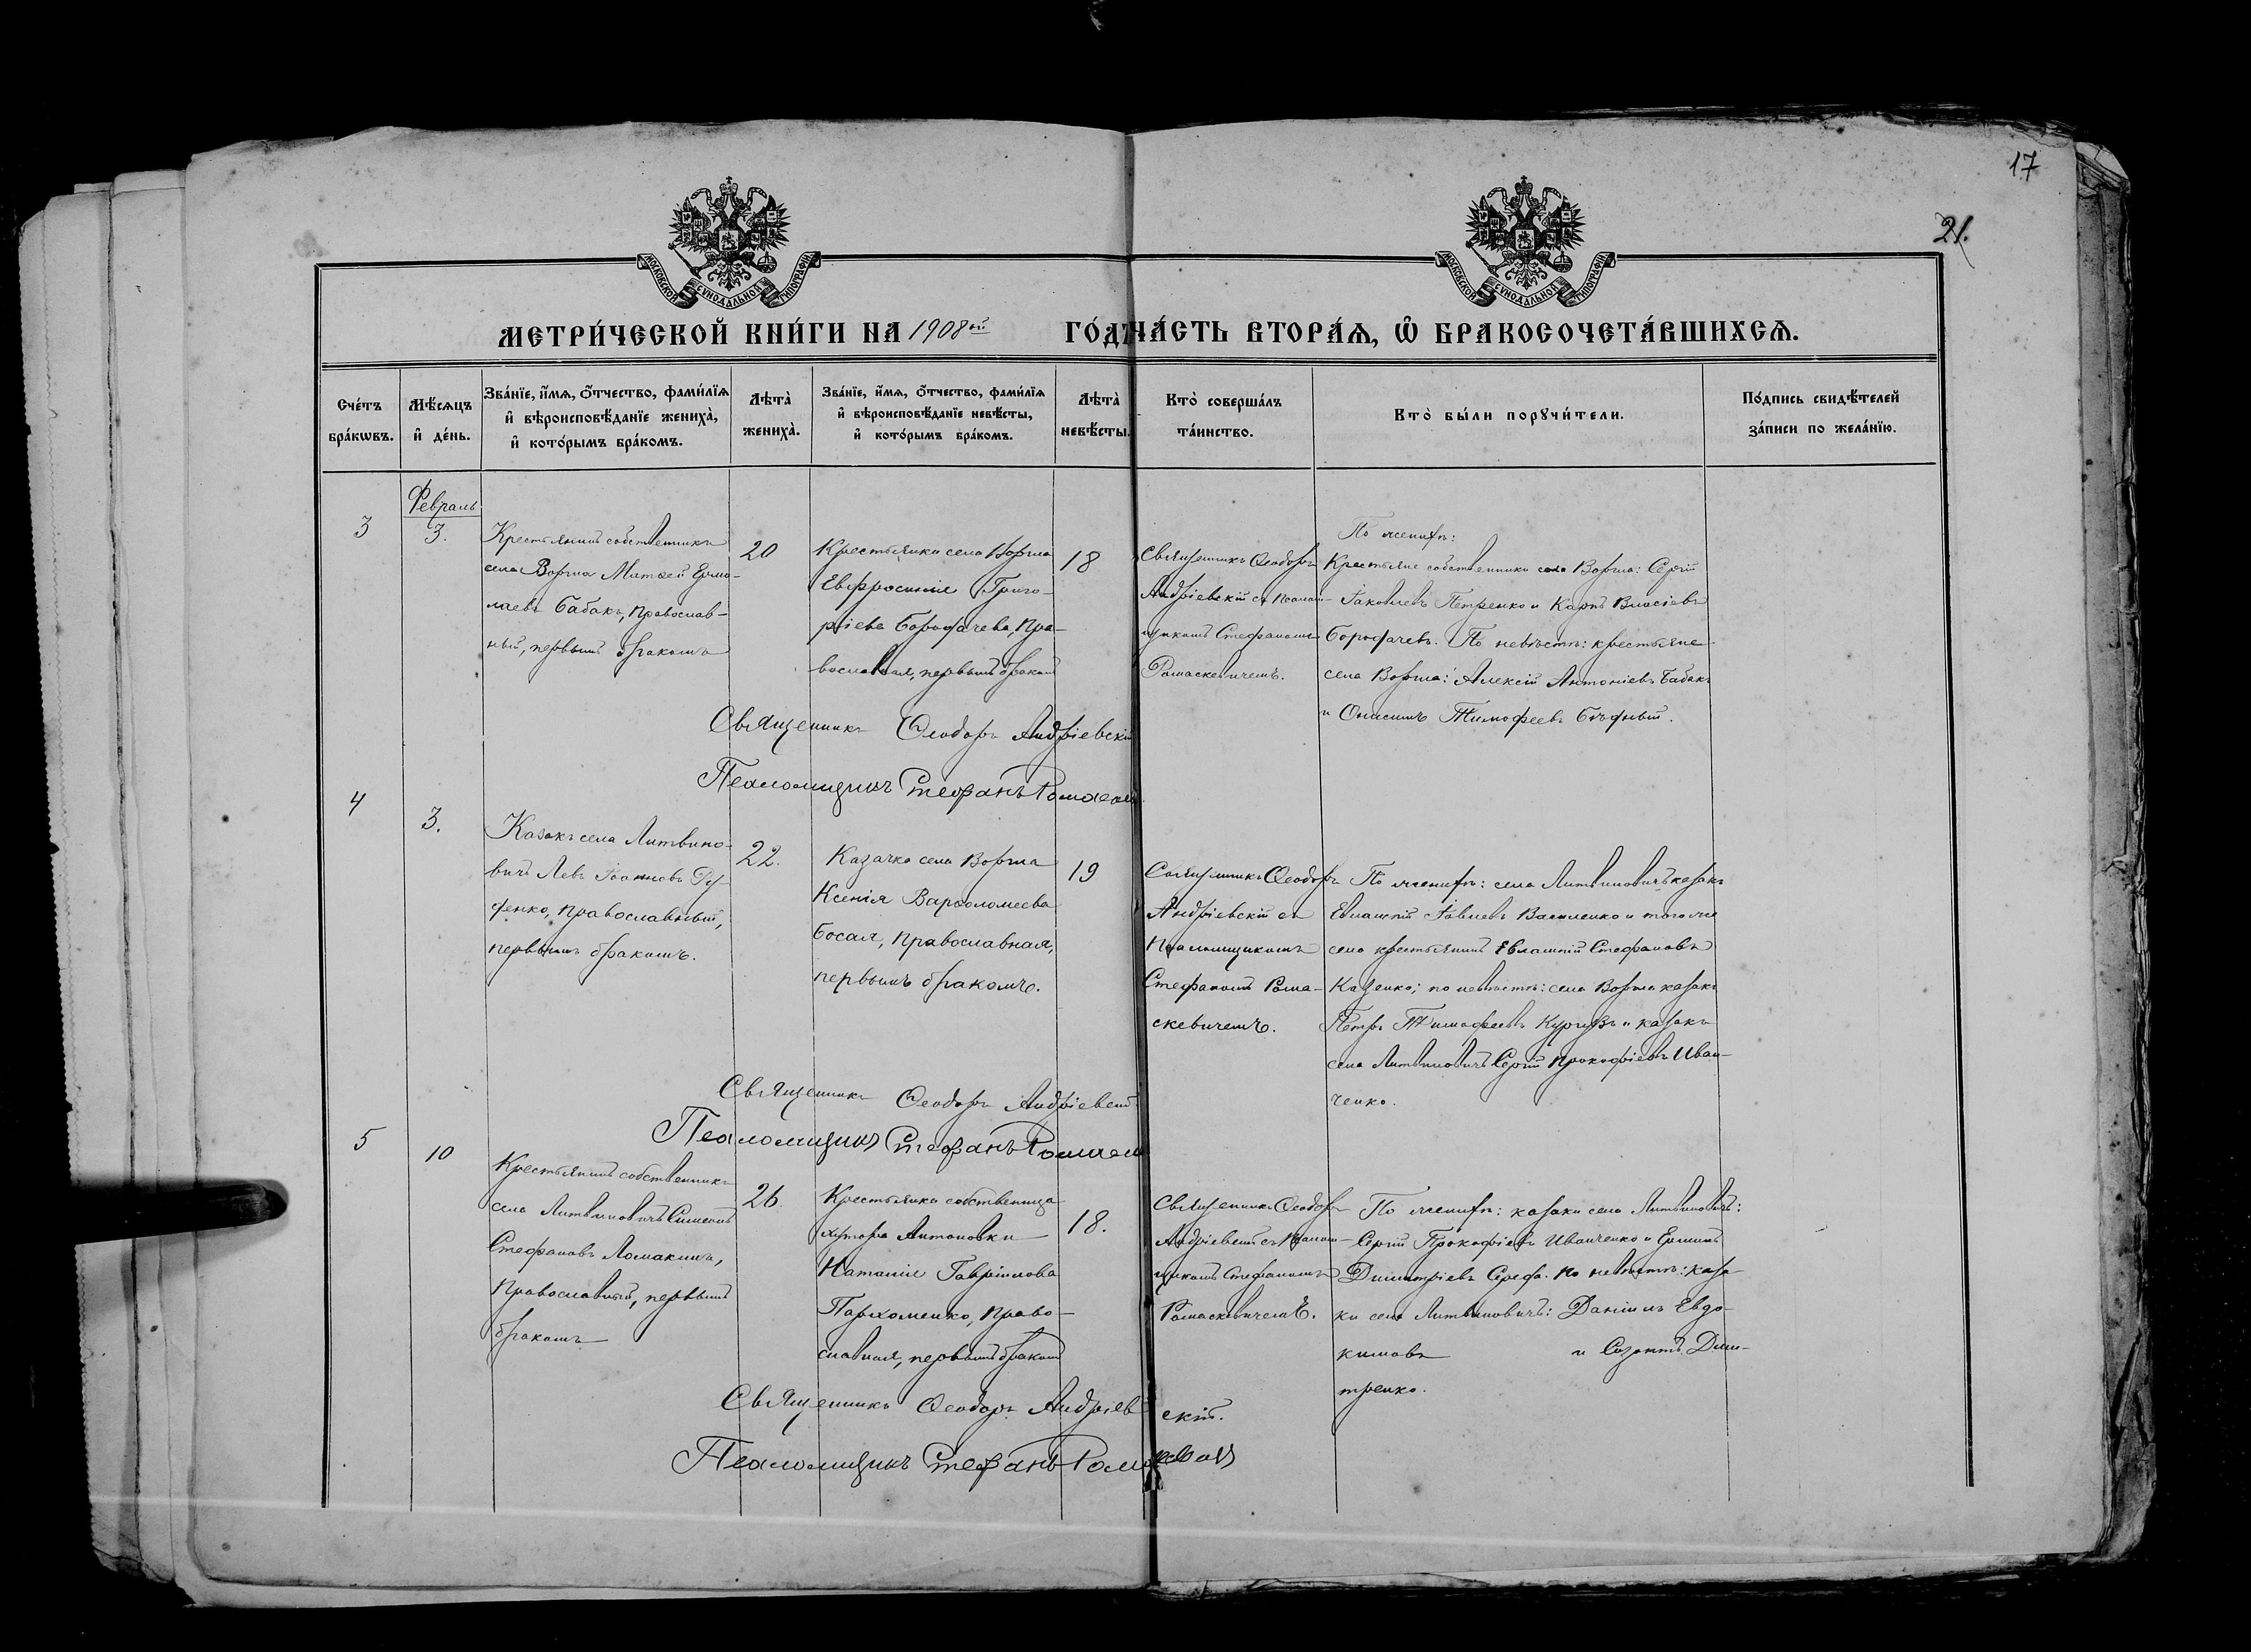 17
21.
МОСКОВСКОЙ СѴНОДАЛЬНОЙ ТИПОГРАФІИ
МОСКОВСКОЙ СѴНОДАЛЬНОЙ ТИПОГРАФІИ
МЕТРИ́ЧЕСКОЙ КНИ́ГИ НА 1908 й ГО́ДЪ
ЧА́СТЬ ВТОРА́Ѧ, Ѽ БРАКОСОЧЕТА́ВШИХСѦ.
Сче́тъ
бра́кѡвъ.
Мѣ́сѧцъ
и҆ де́нь.
Зва́нїе, и҆́мѧ, ѻ҆́тчество, фами́лїѧ
и҆ вѣроисповѣ́данїе жениха̀,
и҆ кото́рымъ бра́комъ.
Лѣта̀
жениха̀.
Зва́нїе, и҆́мѧ, ѻ҆́тчество, фами́лїѧ
и҆ вѣроисповѣ́данїе невѣ́сты,
и҆ кото́рымъ бра́комъ.
Лѣта̀
невѣ́сты.
Кто̀ соверша́лъ
та́инство.
Кто̀ бы́ли порꙋчи́тели.
По́дпись свидѣ́телей
за́писи по жела́нїю.
Февраль
3
3.
Крестьянинъ собственникъ
села Воргла Матѳей Ермо-
лаевъ Бабакъ, православ-
ный, первымъ бракомъ
20
Крестьянка села Воргла
Евфросинія Григо-
ріева Борофачева, пра-
вославная, первымъ бракомъ
18
Священникъ Ѳеодоръ
Андріевскій съ Псалом-
щикомъ Стефаномъ
Ромаскевичемъ.
По женихѣ:
Крестьяне собственники села Воргла: Сергій
Іаковлевъ Петренко и Карпъ Власіевъ
Борофачевъ. По невѣстѣ: крестьяне
села Воргла: Алексій Антоніевъ Бабакъ
и Онисимъ Тимофеевъ Бѣдный.
Священникъ Ѳеодоръ Андріевскій
Псаломщикъ Стефанъ
4
3.
Казакъ села Литвино-
вичъ Левъ Іоанновъ Гу-
денко, православный,
первымъ бракомъ.
22.
Казачка села Воргла
Ксенія Варѳоломеева
Босая, православная,
первымъ бракомъ.
19
Священникъ Ѳеодоръ
Андріевскій съ
Псаломщикомъ
Стефаномъ Рома-
скевичемъ.
По женихѣ: села Литвиновичъ казакъ
Евлампій Василенко и того же
села крестьянинъ Евлампій Стефановъ
Каденко; по невѣстѣ: села Воргла казакъ
Петръ Тимофеевъ и казакъ
села Литвиновичъ Сергій Прокофіевъ Иван-
ченко.
Священникъ Ѳеодоръ Андріевскій
Псаломщикъ Стефанъ
5
10
Крестьянинъ собственникъ
села Литвиновичъ Симеонъ
Стефановъ Ломакинъ,
православный, первымъ
бракомъ
26.
Крестьянка собственница
хутора Антоновки
Наталія Гавріилова
Пархоменко, право-
славная, первымъ бракомъ
18.
Священникъ Ѳеодоръ
Андріевскій съ Псалом-
щикомъ Стефаномъ
Ромаскевичемъ.
По женихѣ: казаки села Литвиновичъ:
Сергій Прокофіевъ Иванченко и
Димитріевъ Середа. По невѣстѣ: каза-
ки села Литвиновичъ: Даніилъ Евдо-
кимовъ и Созонтъ Дми-
тренко.
Священникъ Ѳеодоръ Андріевскій.
Псаломщикъ Стефанъ